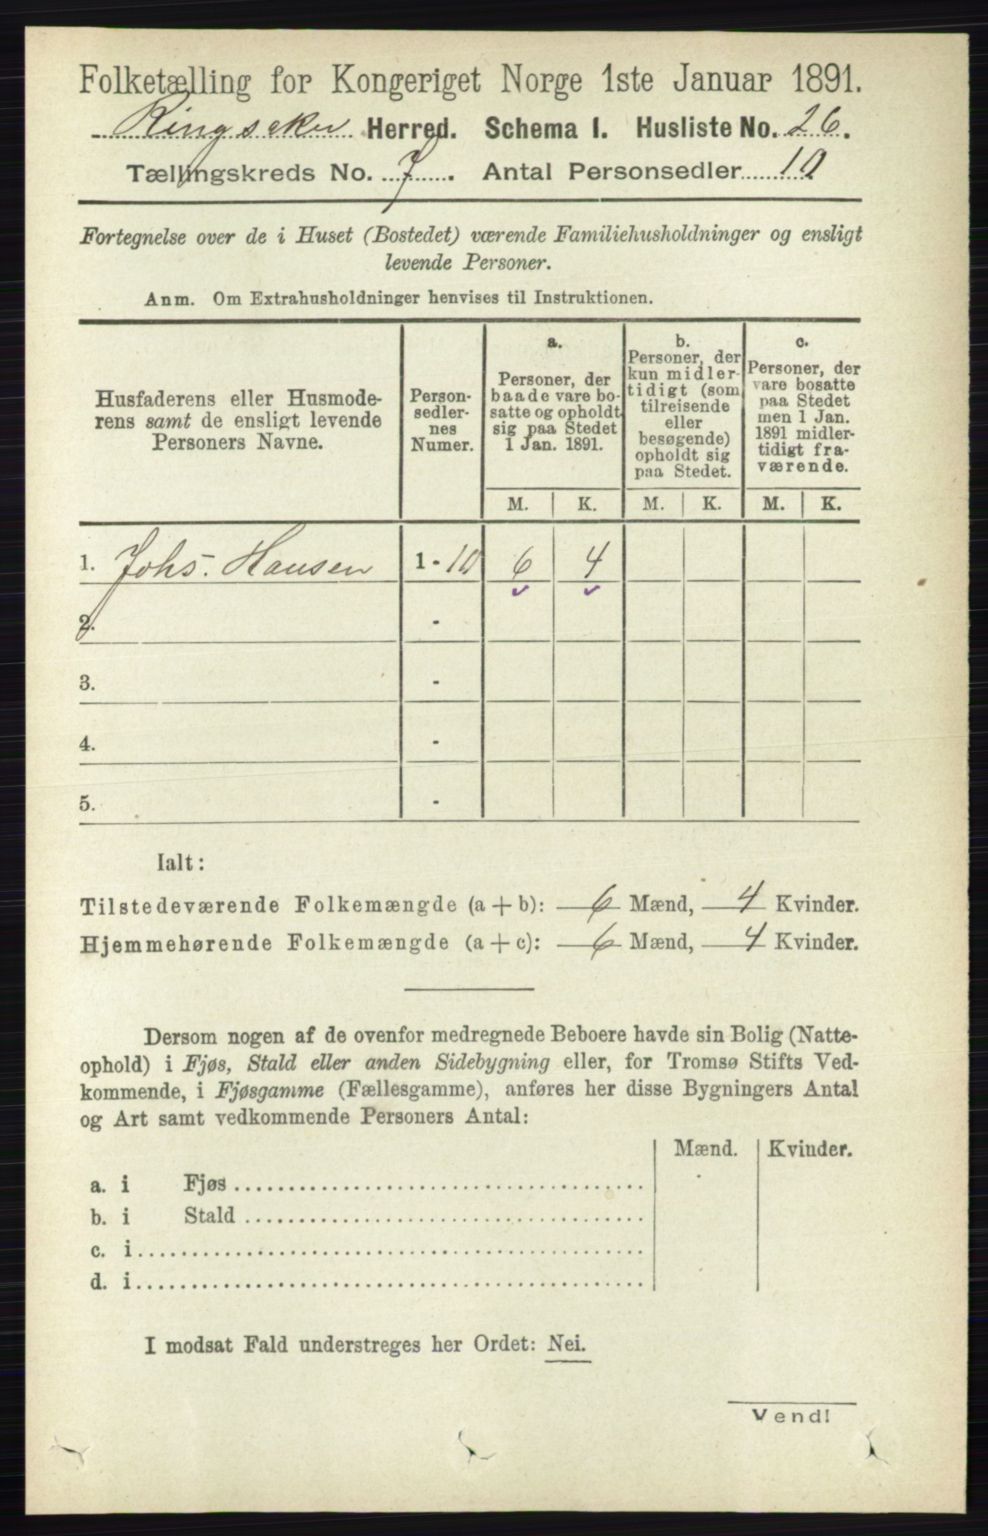 Folketælling for Kongeriget Norge 1ste Januar 1891.
Ringsaker Herred. Schema I. Husliste No. 26.
Tællingskreds No. 7. Antal Personsedler 10
Fortegnelse over de i Huset (Bostedet) værende Familiehusholdninger og ensligt
levende Personer.
Anm. Om Extrahusholdninger henvises til Instruktionen.
Husfaderens eller Husmode-
rens samt de ensligt levende
Personers Navne.
Person-
sedler-
nes
Numer.
a.
Personer, der
baade vare bo-
satte og opholdt
sig paa Stedet
1 Jan. 1891.
b.
Personer, der
kun midler-
tidigt (som
tilreisende
eller
besøgende)
opholdt sig
paa Stedet.
c.
Personer, der
vare bosatte
paa Stedet
men 1 Jan.
1891 midler-
tidigt fra-
værende.
M. K. M. K. M. K.
1. Johs. Hansen 1 - 10 6 4
2. -
3. -
4. -
5. -
Ialt:
Tilstedeværende Folkemængde (a + b): 6 Mænd, 4 Kvinder.
Hjemmehørende Folkemængde (a + c): 6 Mænd, 4 Kvinder.
Dersom nogen af de ovenfor medregnede Beboere havde sin Bolig (Natte-
ophold) i Fjøs, Stald eller anden Sidebygning eller, for Tromsø Stifts Ved-
kommende, i Fjøsgamme (Fællesgamme), anføres her disse Bygningers Antal
og Art samt vedkommende Personers Antal:
Mænd. Kvinder.
a. i Fjøs
b. i Stald
c. i
d. i
I modsat Fald understreges her Ordet: Nei.
Vend!